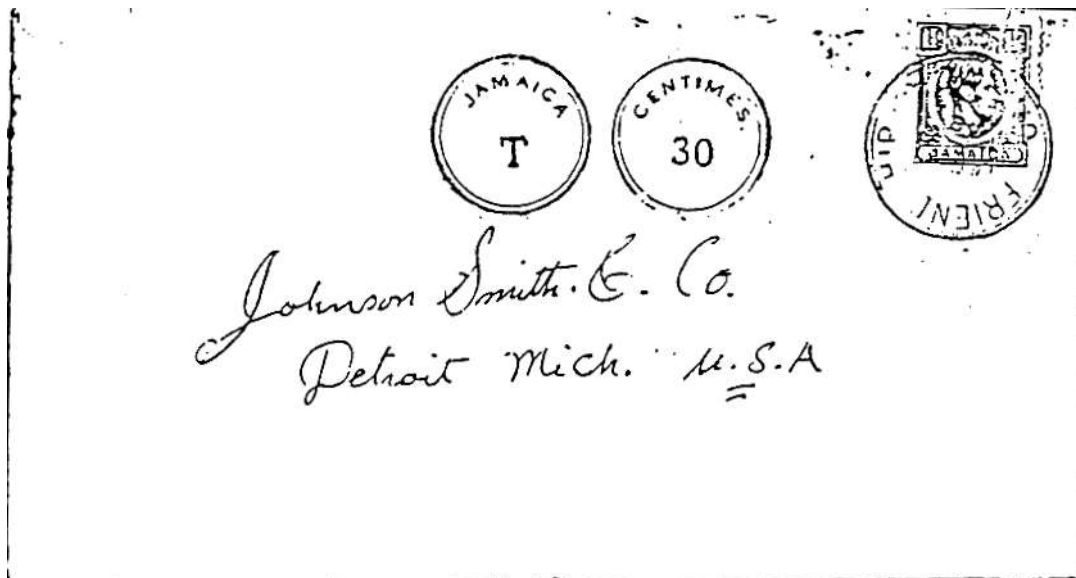 JAMAICA
T
CENTIMES.
30
JAMAICA
Johnson Smith. &. Co.
Detroit Mich. U.S.A